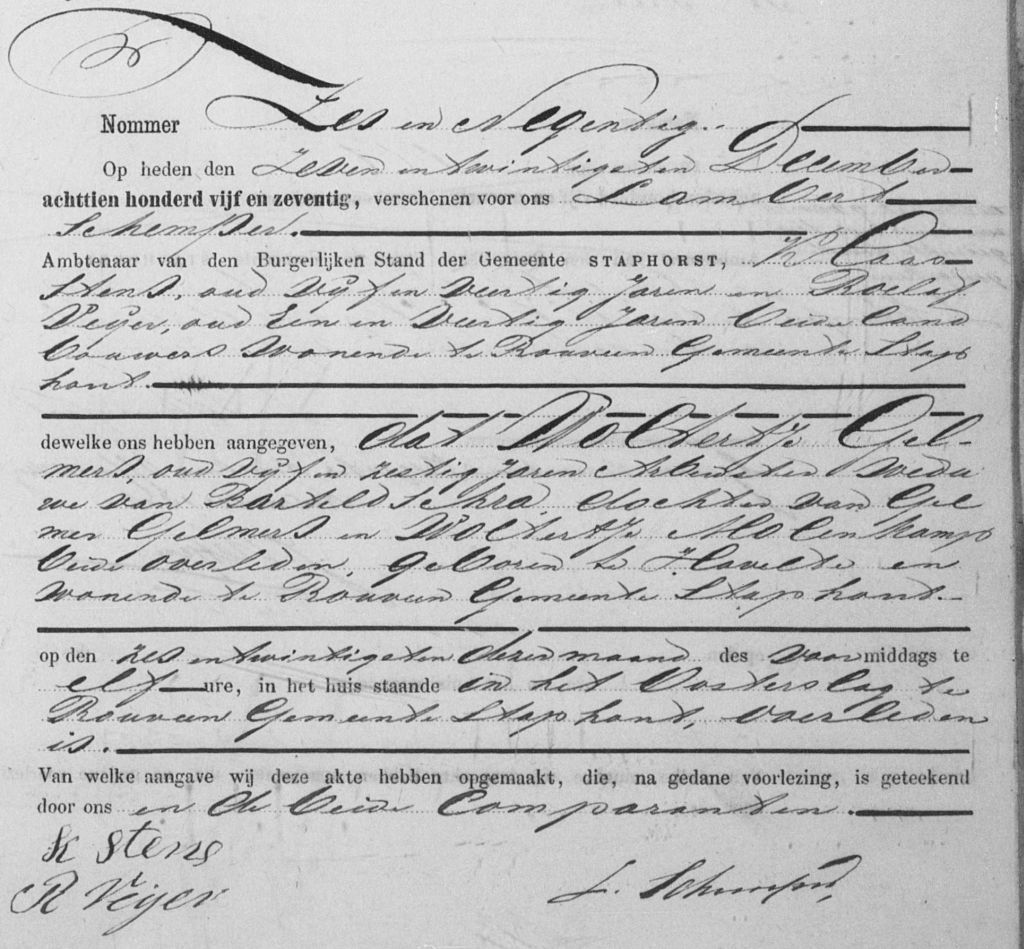 Nommer Zes en Negentig.
Op heden den Zeven en twintigsten December
achttien honderd vijf en zeventig, verschenen voor ons Lambert
Schemper.
Ambtenaar van den Burgerlijken Stand der Gemeente STAPHORST, Klaas
Stens, oud Vijf en Veertig Jaren en Roelof
Veijer, oud Een en Veertig Jaren beide land
bouwers Wonende te Rouveen Gemeente Stap
horst.
dewelke ons hebben aangegeven, dat Woltertje Gel-
mers, oud vijf en zestig Jaren Arbeidster Wedu
we van Barteld Schra, dochter van Gel
mer Gelmers en Woltertje Molenkamp
beide overleden, geboren te Havelte en
Wonende te Rouveen Gemeente Staphorst.
op den zes en twintigsten dezer maand des voormiddags te
elf ure, in het huis staande in het Oosterslag te
Rouveen Gemeente Staphorst, overleden
is.
Van welke aangave wij deze akte hebben opgemaakt, die, na gedane voorlezing, is geteekend
door ons en de beide Comparanten.
K Stens
R Veijer
L. Schemper